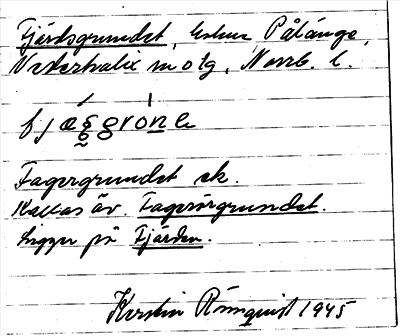 Fjärdsgrundet, holme Pålänge,
Nederkalix sn o tg, Norrb. l.
fjæggrɷne
Fagergrundet ek.
Kallas äv. Fagerörgrundet.
Ligger på Fjärden.
Kerstin Rönnquist 1945